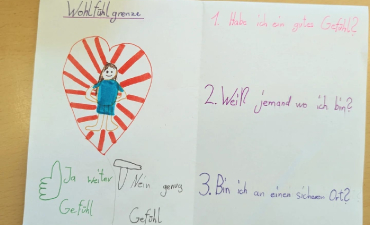 Wohlfühlgrenze
Ja weiter
Gefühl
Nein genug
Gefühl
1. Habe ich ein gutes Gefühl?
2. Weiß jemand wo ich bin?
3. Bin ich an einen sicheren Ort?